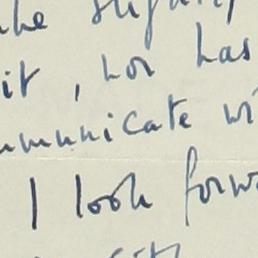 the slightly
it, nor has
ommunicate wi
I look forwa